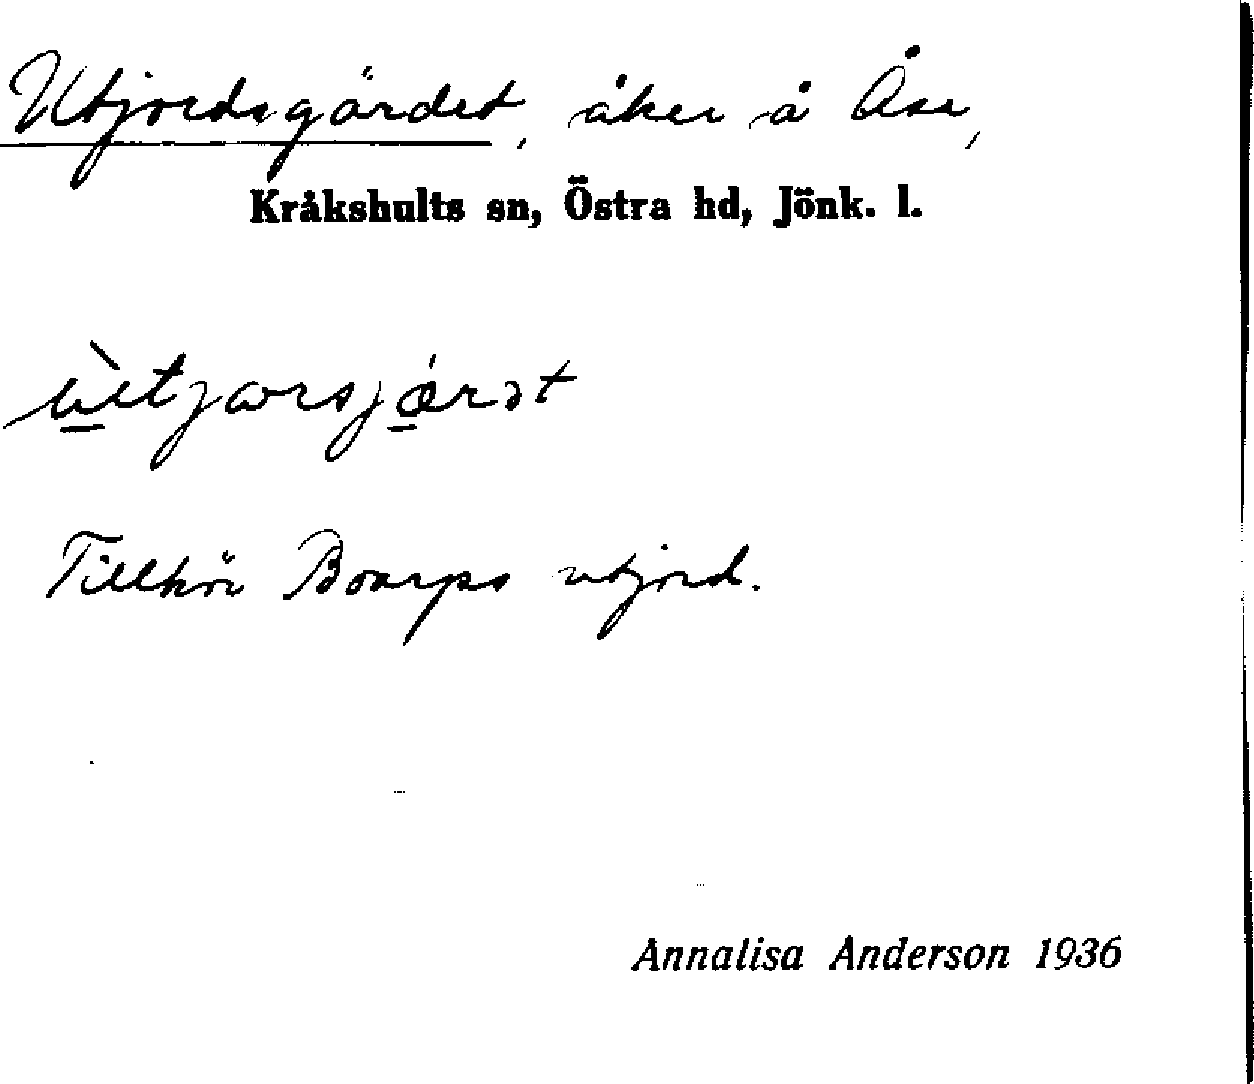 Utjordsgärdet, åker å Åse,
Kråkshults sn, Östra hd, Jönk. l.
Tillhör Boarps utjord.
Annalisa Anderson 1936